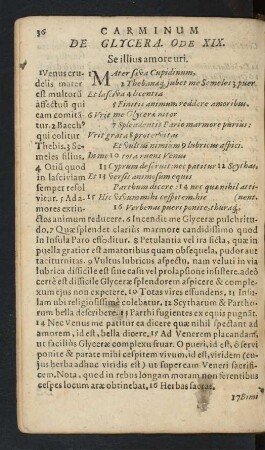 36 CARMINUM
DE GLYCERA. ODE XIX.
Se illius amore uri.
1Venus cru-
delis mater
est multorū
affectuū qui
eam comitā-
tur. 2 Bacchꝰ
qui colitur
Thebis. 3 Se-
meles filius.
4 Otiū quod
in lasciviam
semper resol
vitur. 5 Ad a-
mores extin-
MAter sæva Cupidinum,
2 Thebanæq; jubet me Semeles 3 puer
Et lasciva 4 licentia
5 Finitis animum reddere amoribus.
6 Urit me Glyceræ nitor
7 Splendentis Pario marmore purius:
Urit grata 8 protervitas
Et 9 vultus nimium lubricus aspici.
In me 10 tota ruens Venus
11 Cyprum deseruit: nec patitur 12 Scythas,
Et 13 versis animosum equis
Parthum dicere: 14 nec quæ nihil atti-
15 Hic vivum mihi cespitem, hic nent.
16 Verbenas pueri ponite, thuraq;
ctos animum reducere. 6 Incendit me Glyceræ pulchritu-
do. 7 Quæ splendet clarius marmore candidissimo quod
in Insula Paro effoditur. 8 Petulantia vel ira ficta, quæ in
puella gratior est amatoribus quam obsequela, pudor aut
taciturnitas. 9 Vultus lubricus aspectu, nam veluti in via
lubrica difficile est sine casu vel prolapsione insistere. adeò
certè est difficile Glyceræ splendorem aspicere, & comple-
xum ejus non expetere. 10 Totas vires effundens. 11 In-
sulam ubi religiosissimè colebatur. 12 Scytharum & Partho-
rum bella describere. 13 Parthi fugientes ex equis pugnāt.
14 Nec Venus me patitur ea dicere quæ nihil spectant ad
amorem, id est, bella dicere. 15 Ad Venerem placandam,
ut facilius Glyceræ complexu fruar. O pueri, id est, ô servi
ponite & parate mihi cespitem vivum, id est, viridem (cu-
jus herba adhuc viridis est) ut super eum Veneri sacrifi-
cem. Nota, quod in rebus longam moram non ferentibus
cespes locum aræ obtinebat. 16 Herbas sacras.
17 Bimi